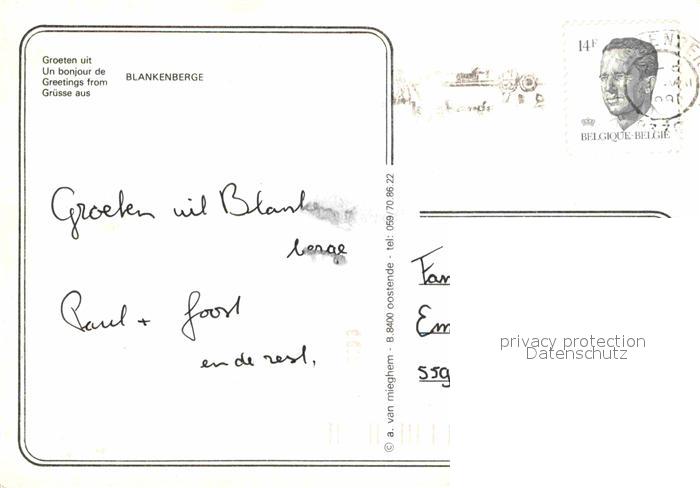 Groeten uit
Un bonjour de
Greetings from
Grüsse aus
BLANKENBERGE
14F
BELGIQUE-BELGIË
Groeten uit Blanken
berge
Paul + Joost
en de rest.
© a. van mieghem - B.8400 oostende - tel: 059/70.86.22
Fam
Em
559
privacy protection
Datenschutz